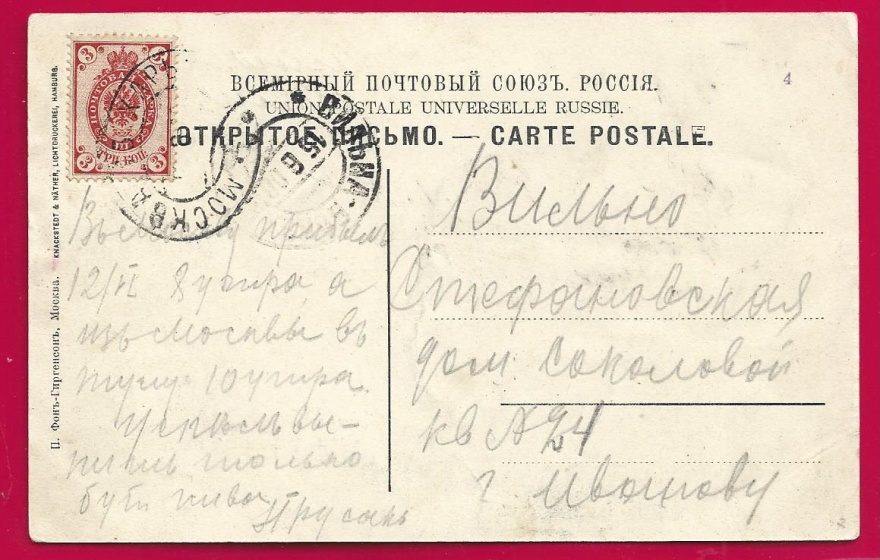 ВСЕМІРНЫЙ ПОЧТОВЫЙ СОЮЗЪ. РОССІЯ.
UNION POSTALE UNIVERSELLE RUSSIE.
ОТКРЫТОЕ ПИСЬМО. — CARTE POSTALE.
4
3 3
3 3
ТРИ КОП.
МОСКВА
ВИЛЬНА
П. Фонъ-Гиргенсонъ, Москва. KNACKSTEDT & NÄTHER, LICHTDRUCKEREI, HAMBURG.
Въ Москву прибылъ
12/VI 8 утра а
изъ Москвы въ
Тулу 10 утра.
только
бут. пива
Вильно
Стефановская
дом Соколовой
кв № 24
г Иванову